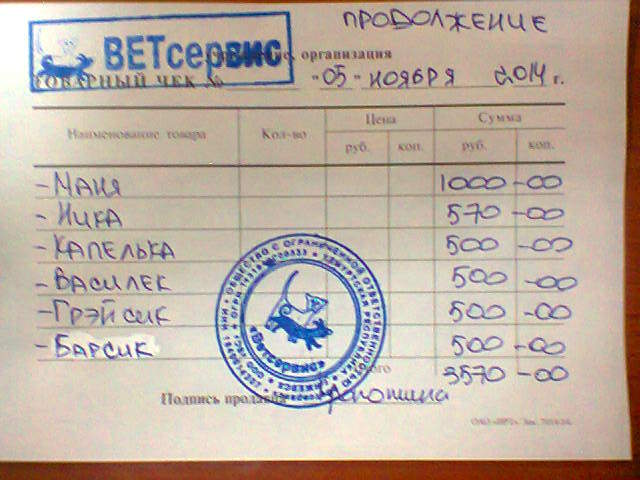 ПРОДОЛЖЕНИЕ
ВЕТсервис
организация
ТОВАРНЫЙ ЧЕК №
"05" НОЯБРЯ 2014 г.
Наименование товара Кол-во Цена Сумма
руб. коп. руб. коп.
-МАНЯ 1000-00
-НИКА 570-00
-КАПЕЛЬКА 500-00
-ВАСИЛЕК 500-00
-ГРЭЙСИК 500-00
-БАРСИК 500-00
3570-00
Подпись продавца
ОБЩЕСТВО С ОГРАНИЧЕННОЙ ОТВЕТСТВЕННОСТЬЮ
УДМУРТСКАЯ РЕСПУБЛИКА
«Ветсервис»